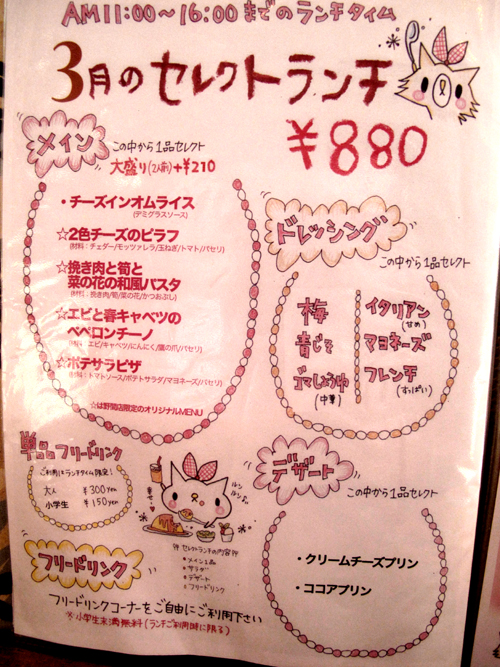 AM11:00～16:00までのランチタイム
3月のセレクトランチ
￥880
メイン
この中から1品セレクト
大盛り(2人前)+￥210
・チーズインオムライス
(デミグラスソース)
☆2色チーズのピラフ
(材料：チェダー/モッツァレラ/玉ねぎ/トマト/パセリ)
☆挽き肉と筍と
菜の花の和風パスタ
(材料：挽き肉/筍/菜の花/かつおぶし)
☆エビと春キャベツの
ペペロンチーノ
(材料：エビ/キャベツ/にんにく/鷹の爪/パセリ)
☆ポテサラピザ
(材料：トマトソース/ポテトサラダ/マヨネーズ/パセリ)
☆は野間店限定のオリジナルMENU
ドレッシング
この中から一品セレクト
梅
イタリアン
(甘め)
青じそ
マヨネーズ
ゴマしょうゆ
(中華)
フレンチ
(すっぱい)
単品フリードリンク
ご利用はランチタイム限定！
大人 ￥300yen
小学生 ￥150yen
ルン
ルン♪
幸せ
セレクトランチの内容
・メイン1品
・サラダ
・デザート
・フリードリンク
フリードリンク
フリードリンクコーナーをご自由にご利用下さい
※小学生未満無料(ランチご利用時に限る)
デザート
この中から一品セレクト
・クリームチーズプリン
・ココアプリン